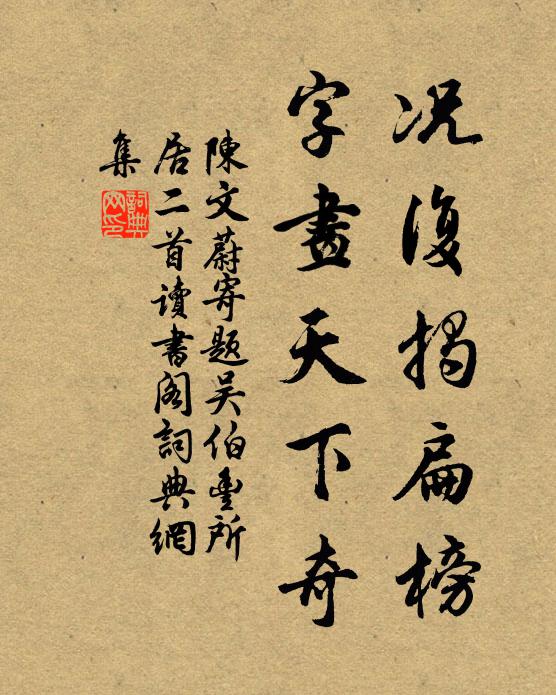 况復揭扁榜
字畫天下奇
陳文蔚寄題吴伯豐所
居二首讀書閣詞典網
集
詞典
网印